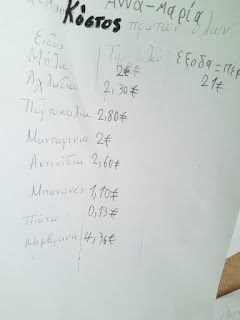 Άννα-Μαρία
Κόστος πρώτων υλών
Είδος Τιμή κιλού Έξοδα =
Μήλα 2€ 21€
Αχλάδια 2,30€
Πορτοκάλια 2,80€
Μανταρίνια 2€
Ακτινίδια 2,60€
Μπανάνες 1,10€
Πιάτα 0,13€
Μεμβράνη 4,36€